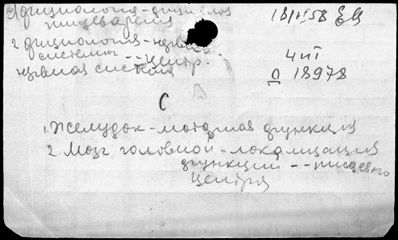 физиология-
пищеварения
2 физиология-нервной
системы -- центр.
нервная система
18/VI 58
4 П
Д 18978
С
1. Желудок-моторная функция
2. Мозг головной-локализация
функций -- пищевого
центра